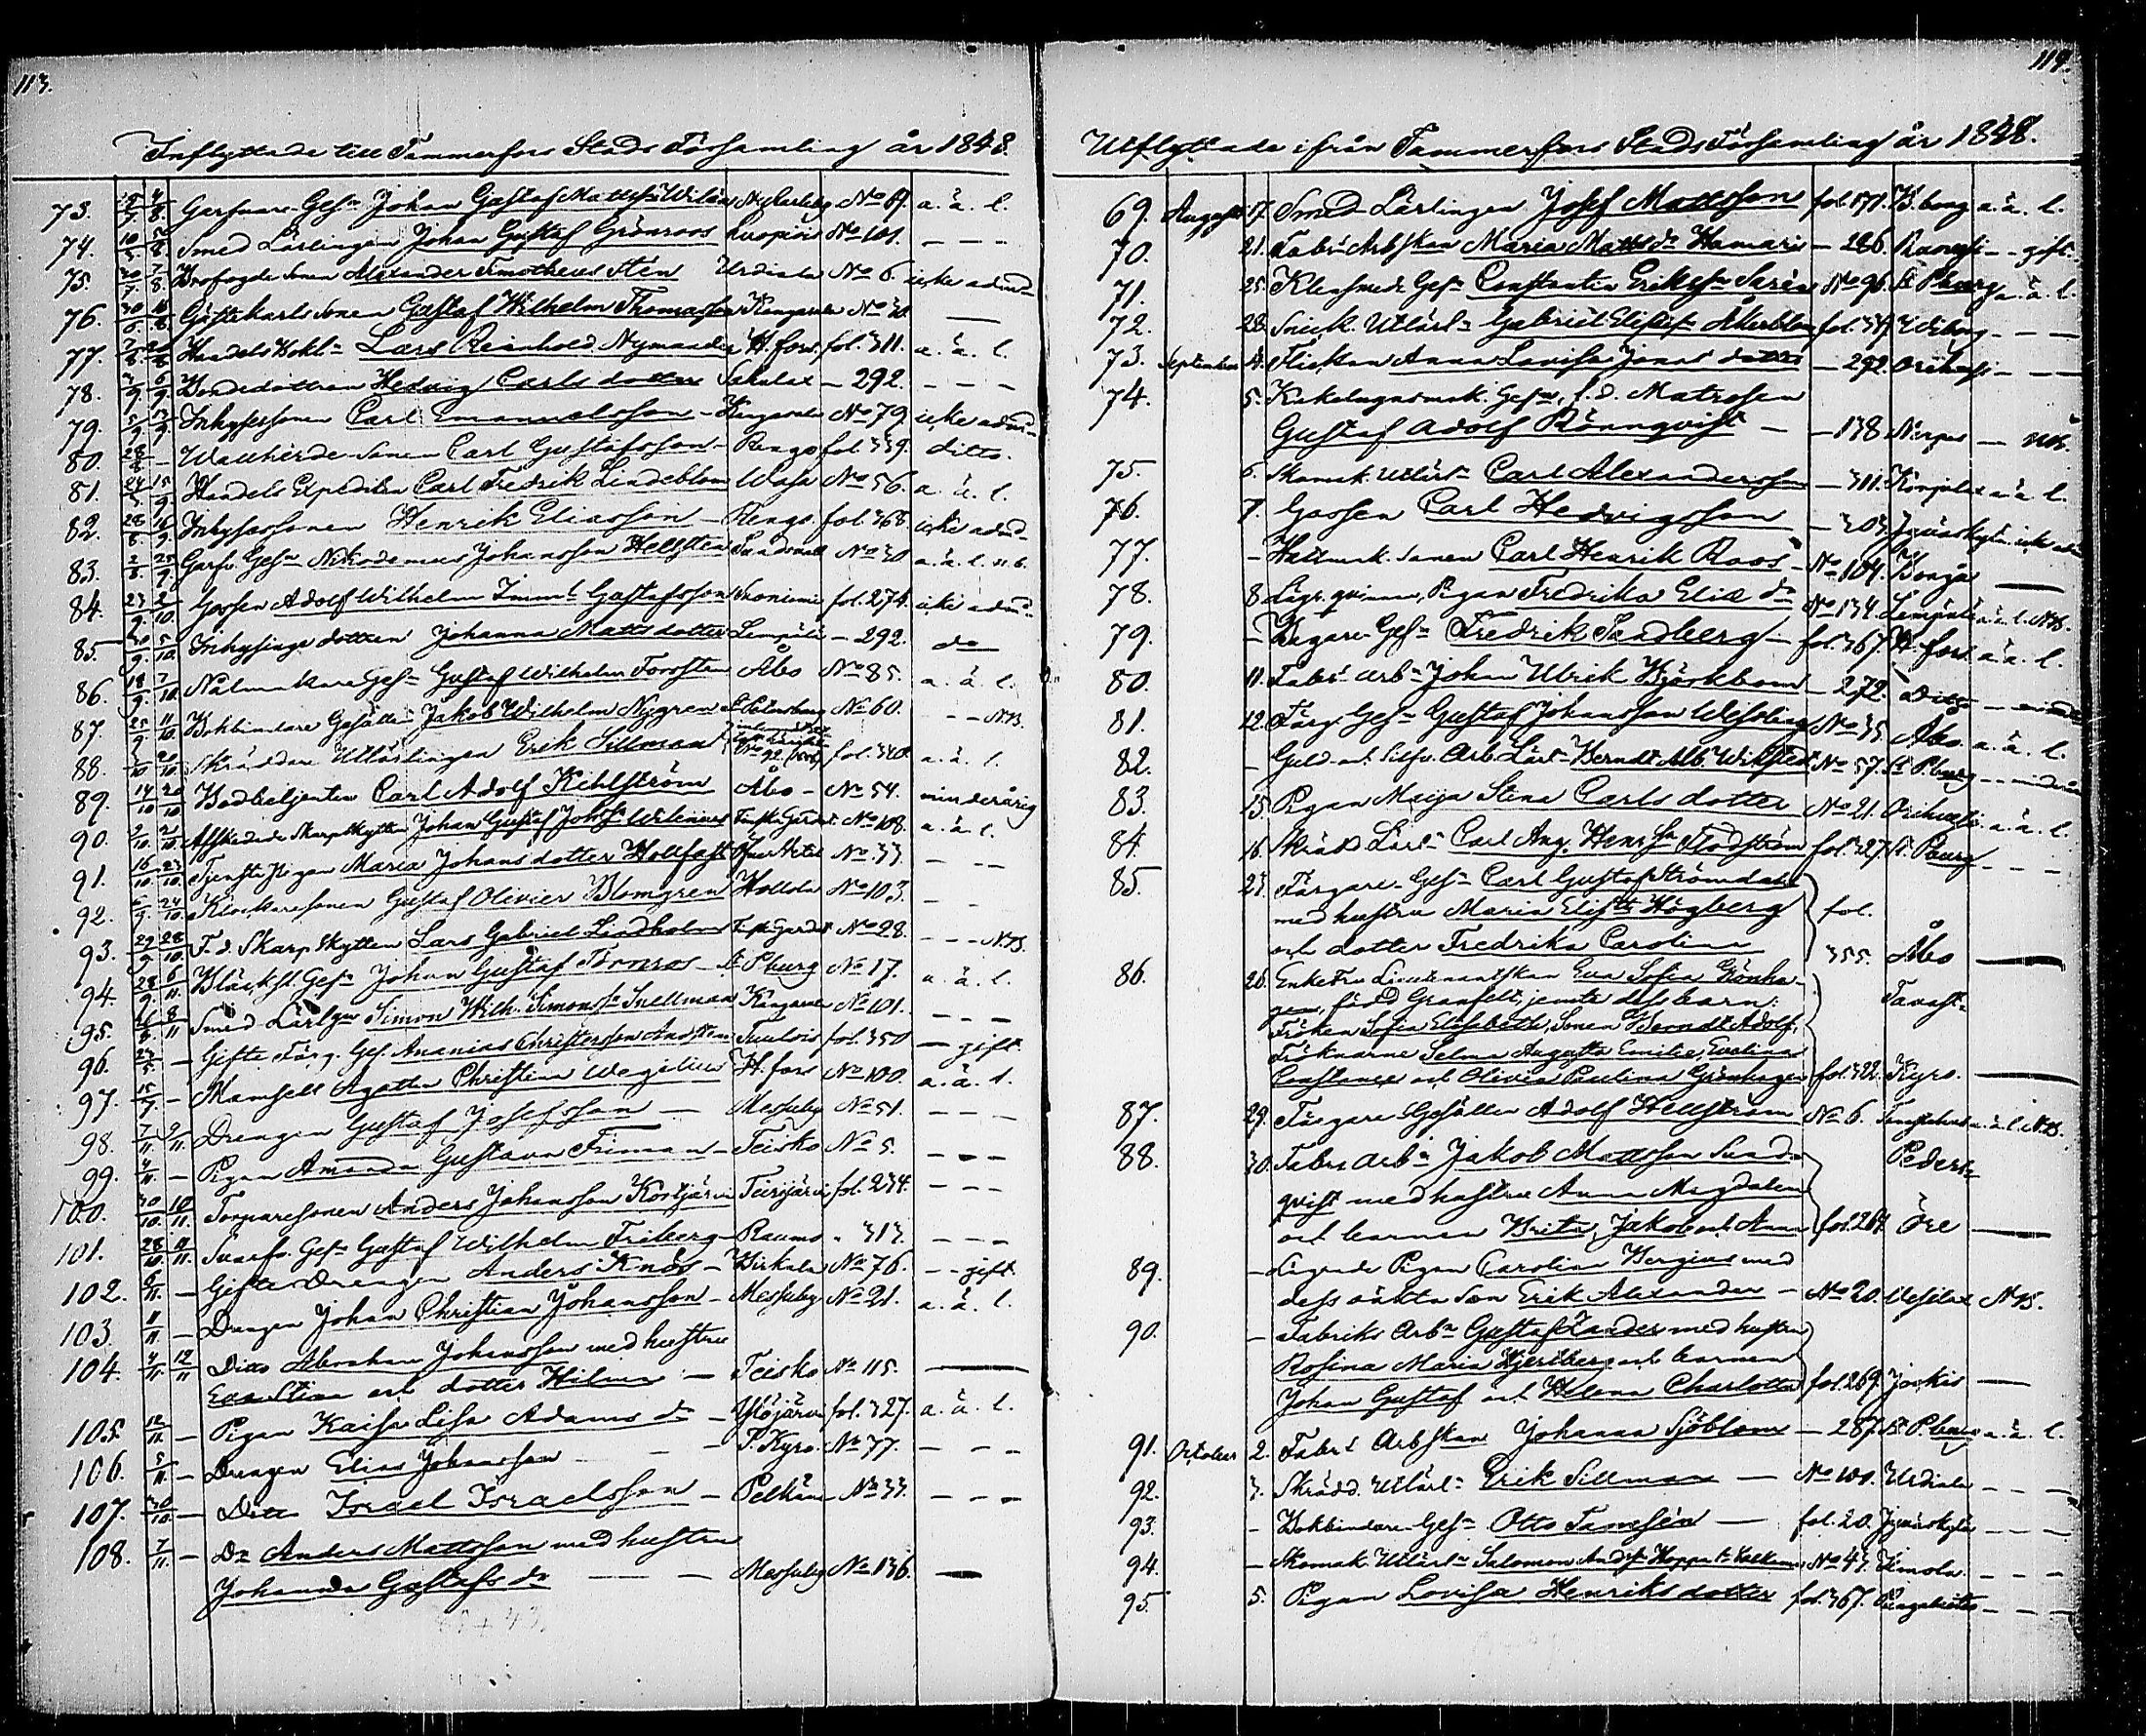 113.
Inflyttade till Tammerfors Stads Församling år 1848.
73. Garfvare Gesn Johan Gustaf Mattss Wilén N:o 67. a. ä. l.
74. 10/5 Smed Lärlingen Johan Gustaf Grönroos Luopiois N:o 101. - - -
75. 30/7 7/8 Brofogde Sonen Alexander Timotheus Sten Urdiala N:o 6. icke admd
76. Gästekarls Sonen Gustaf Wilhelm Thomasson Kangasala N:o —
77. Handels Bokh:n Lars Reinhold Nymander H.fors fol. 311. a. ä. l.
78. 6/9 Bondedottren Hedvig Carls dotter Sahalax — 292. - - -
79. Inhysessonen Carl Emanuelsson - Kangasala N:o 79. icke admd
80. 28/8 - Wallherde Sonen Carl Gustafsson - Rengo fol. 339. ditto.
81. 15/9 Handels Expediten Carl Fredrik Lindeblom Wasa N:o 56. a. ä. l.
82. 28/8 16/9 Inhysessonen Henrik Eliasson - Rengo fol. 368. icke admd
83. 2/8 25/9 Garfv. Gesn Nikodemus Johansson Hellsten Sundsvall N:o 30 a. ä. l. n. b.
84. 23/9 2/10 Gossen Adolf Wilhelm Imml Gustafsson fol. 274. icke admd
85. 30/9 5/10 Inhysings dottren Johanna Matts dotter Lempäla — 292. do
86. 18/9 7/10 Nålmakare Gesn Gustaf Wilhelm Forsten Åbo N:o 85. a. ä. l.
87. 25/9 11/10 Bokbindare Gesällen Jakob Wilhelm Nygren St Petersburg N:o 60. - - NB.
88. Skräddare Utlärlingen Erik Sillman fol. 340. a. ä. l.
89. 14/10 20/10 Bodbetjenten Carl Adolf Kihlström Åbo - N:o 54. minderårig
90. 2/10 21/10 Afskedade Skarpskytten Johan Gustaf Johss Wilenius Finska Gardet N:o 108. a. ä. l.
91. 16/10 23/10 Tjenste Pigan Maria Johans dotter Hollfast N:o 33 - - -
92. 6/9 24/10 Klockaresonen Gustaf Olivier Blomgren Hollola N:o 103. - -
93. 29/9 28/10 F. d. Skarpskytten Lars Gabriel Lindholm Finska Gardet N:o 28. - - - NB.
94. 28/9 6/11 Gesn Johan Gustaf Törnroos - St P.burg N:o 17. a. ä. l.
95. 8/11 Smed Lärlgn Simon Wilh. Simonss Snellman Kangasala N:o 101. - - -
96. 23/5 - Gifte Färg. Ges. Ananias Christersson Tuulois fol. 350 — gift.
97. 15/7 - Mamsell Agatha Christina Wegelius H.fors N:o 100. a. ä. l.
98. 7/11 9/11 Drengen Gustaf Josefsson — Messuby N:o 51. - - -
99. 4/11 - Pigan Amanda Gustava Friman - Teisko N:o 5. - - -
100. 30/10 10/11 Torparesonen Anders Johansson Kostjärvi Teisjärvi fol. 234. - - -
101. 28/10 11/11 Svarfv. Gesn Gustaf Wilhelm Friberg - Raumo „ 313. - - -
102. 6/11 - Gifte Drengen Anders Knås - Birkala N:o 76. - - gift.
103. 11/11 - Drengen Johan Christian Johansson - Messuby N:o 21. a. ä. l.
104. 4/11 12/11 Dito Abraham Johansson med hustru
Eva Stina och dotter Hilma — Teisko N:o 115. —
105. 12/11 - Pigan Kaisa Lisa Adams dr - Ylöjärvi fol. 327. a. ä. l.
106. 5/11 - Drengen Elias Johansson - - T. Kyro N:o 77. - - -
107. 30/10 - Ditto Israel Israelsson - Pelkäne N:o 33. - - -
108. 7/11 - Do Anders Mattsson med hustru
Johanna Gustafs dr — — Messuby N:o 136. —
Utflyttade ifrån Tammerfors Stads Församling år 1848.
69. Augusti 17. Smed Lärlingen Josef Mattsson fol. 171. B.borg a. ä. l.
70. 21. Fabrs Arbskan Maria Matts dr Hamari — 286. Ruovesi - - gift.
71. 25. Klensmeds Gesn Constantin Erikss Sarén N:o 96. St P.burg a. ä. l.
72. 28. Snick. Utlärl:n Gabriel Elisæs Åkerblom fol. Wiborg - - -
73. September 4. Flickan Anna Lovisa Jonas dotter — 292. Orihvesi - - -
74. 5. Kakelugnsmak. Gesn, f. d. Matrosen
Gustaf Adolf Rönnqvist — — 138 Nerpes — NB.
75. 6. Skomak. Utlärl:n Carl Alexandersson — 311. a. ä. l.
76. 7. Gossen Carl Hedvigsson — 303. Jyväskylä. icke adm
77. - Hattmak. Sonen Carl Henrik Roos - N:o 104. Borgå —
78. 8. Legoqvinnan, Pigan Fredrika Eliæ dr N:o 134. Lempäla a. ä. l. NB.
79. - Bagare Gesn Fredrik Sandberg - fol. 367. H.fors a. ä. l.
80. 11. Fabrs Arb:n Johan Ulrik Björkbom — 272. Ditto
81. 12. Färg. Gesn Gustaf Johansson Wessling N:o 35 Åbo. a. ä. l.
82. - Guld och Silfv. Arb. Lärl:n Berndt Alb. Wikstedt N:o 57. St P.burg - - minderår
83. 15. Pigan Maija Stina Carls dotter N:o 21. Orihvesi a. ä. l.
84. 16. Skrädd Lärl:n Carl Aug. Henrss Flodström fol. 327. St. P.burg - - -
85. 23. Färgare Gesn Carl Gustaf Strömdahl
med hustru Maria Elisbth Högberg fol.
och dotter Fredrika Carolina 355. Åbo —
86. 26. Enkefru Lieutenantskan Eva Sofia Grönha-
gen, född Granfelt, jemte dess barn: Tavast-
Fröken Sofia Elisabeth, Sonen Berndt Adolf,
Fröknarne Selma Augusta Emilie, Evelina
Constance och Olivia Paulina Grönhagen fol. 322. Kyro. —
87. 29. Färgare Gesällen Adolf Hellström N:o 6. a. ä. l. NB.
88. 30. Fabrs Arb:n Jakob Mattsson Sund- Peders-
qvist med hustru Anna Magdalena
och barnen Brita, Jakob och Anna fol. 264 öre —
89. - Legende Pigan Carolina Bergius med
dess oäkta Son Erik Alexander — N:o 20. Vesilax NB.
90. - Fabriks Arb:n Gustaf Zander med hustru
Rosina Maria Hjertberg och barnen
Johan Gustaf och Helena Charlotta fol. 269. Jockis —
91. October 2. Fabrs Arbskan Johanna Sjöblom — 287. St P.burg a. ä. l.
92. 3. Skrädd. Utlärl:n Erik Sillman — N:o 100. Urdiala - - -
93. - Bokbindare Gesn Otto Tamsén — fol. 20. Jyväskylä - - -
94. - Skomak. Utlärl:n Salomon Andrss Hoppu N:o 43. Kimola. - - -
95. 5. Pigan Lovisa Henriks dotter fol. 367. Pungalaitio - - -